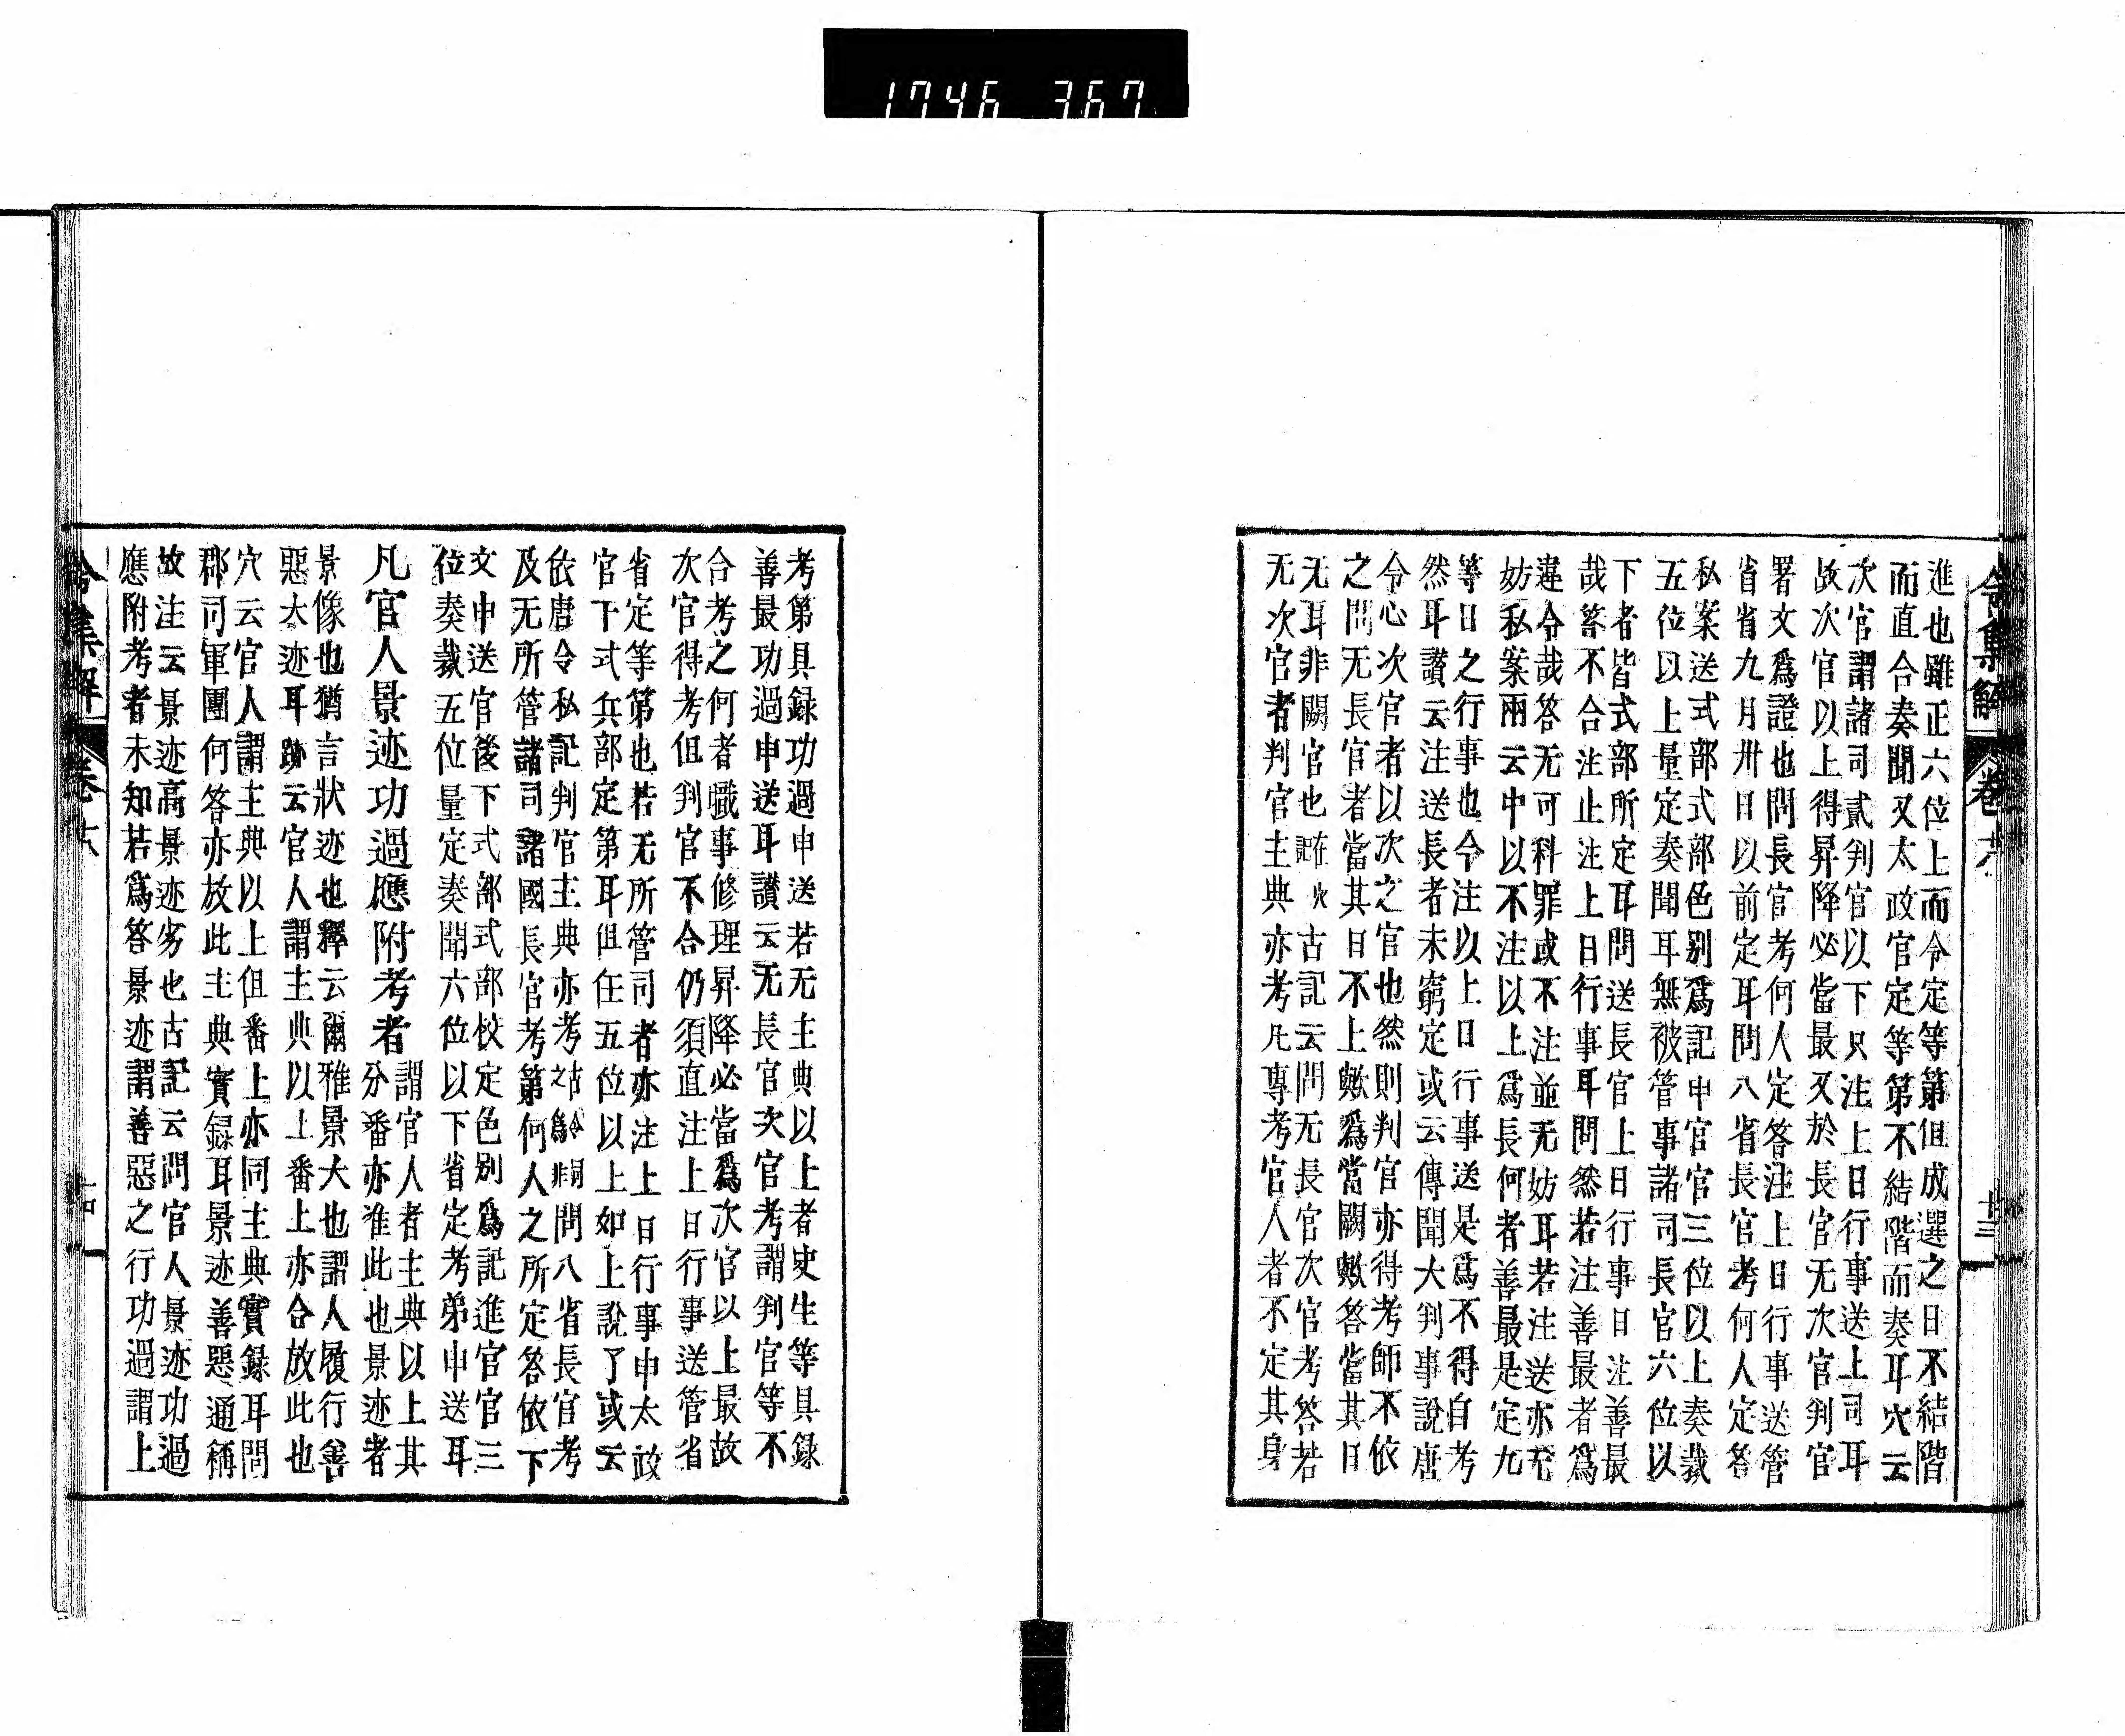 1746 367
令集解 卷十六 十三
進也雖正六位上而令定等第但成選之日不結階
而直合奏聞又太政官定等第不結階而奏耳穴云
次官謂諸司貳判官以下只注上日行事送上司耳
故次官以上得昇降必當最又於長官无次官判官
署文爲證也問長官考何人定答注上日行事送管
省省九月卅日以前定耳問八省長官考何人定答
私案送式部式部色別爲記申官官三位以上奏裁
五位以上量定奏聞耳無被管事諸司長官六位以
下者皆式部所定耳問送長官上日行事日注善最
哉答不合注止注上日行事耳問然若注善最者爲
違令哉答无可科罪或不注並无妨耳若注送亦无
妨私案兩云中以不注以上爲長何者善最是定九
等日之行事也今注以上日行事送是爲不得自考
然耳讃云注送長者未窮定或云傳聞大判事說唐
令心次官者以次之官也然則判官亦得考師不依
之問无長官者當其日不上歟爲當闕歟答當其日
无耳非闕官也古記云問无長官次官考答若
无次官者判官主典亦考凡專考官人者不定其身
考第具録功過申送若无主典以上者史生等具録
善最功過申送耳讃云无長官次官考謂判官等不
合考之何者職事修理昇降必當爲次官以上最故
次官得考但判官不合仍須直注上日行事送管省
省定等第也若无所管司者亦注上日行事申太政
官下式兵部定第耳但任五位以上如上說了或云
依唐令私記判官主典亦考之問八省長官考
及无所管諸司諸國長官考第何人之所定答依下
文申送官後下式部式部校定色別爲記進官官三
位奏裁五位量定奏聞六位以下省定考弟申送耳
凡官人景迹功過應附考者
謂官人者主典以上其
分番亦准此也景迹者
景像也猶言狀迹也釋云爾雅景大也謂人履行善
惡大迹耳跡云官人謂主典以上番上亦合放此也
穴云官人謂主典以上但番上亦同主典實録耳問
郡司軍團何答亦放此主典實録耳景迹善惡通稱
故注云景迹高景迹劣也古記云問官人景迹功過
應附考者未知若爲答景迹謂善惡之行功過謂上
令集解 卷十六 十四